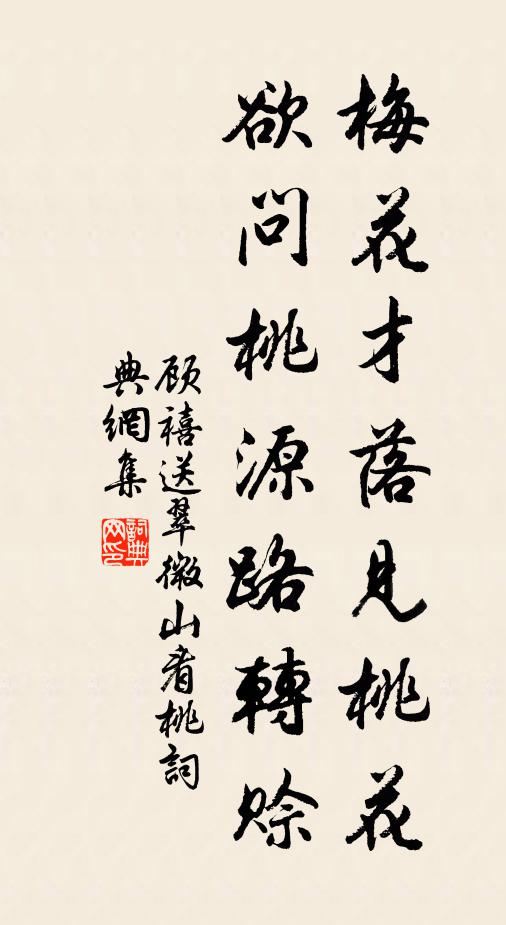 梅花才落見桃花
欲問桃源路轉賒
顾禧送翠微山看桃詞
典網集
詞典
网印